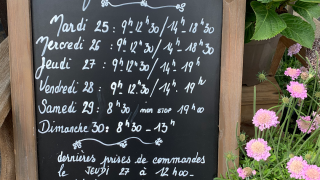 Mardi 25 : 9h-12h30/14h-18h30
Mercredi 26 : 9h-12h30/14h-18h30
Jeudi 27 : 9h-12h30/14h-19h
Vendredi 28 : 9h-12h30/14h-19h
Samedi 29 : 8h30 non stop 19h00
Dimanche 30 : 8h30-13h
dernières prises de commandes
le JEUDI 27 à 12h00